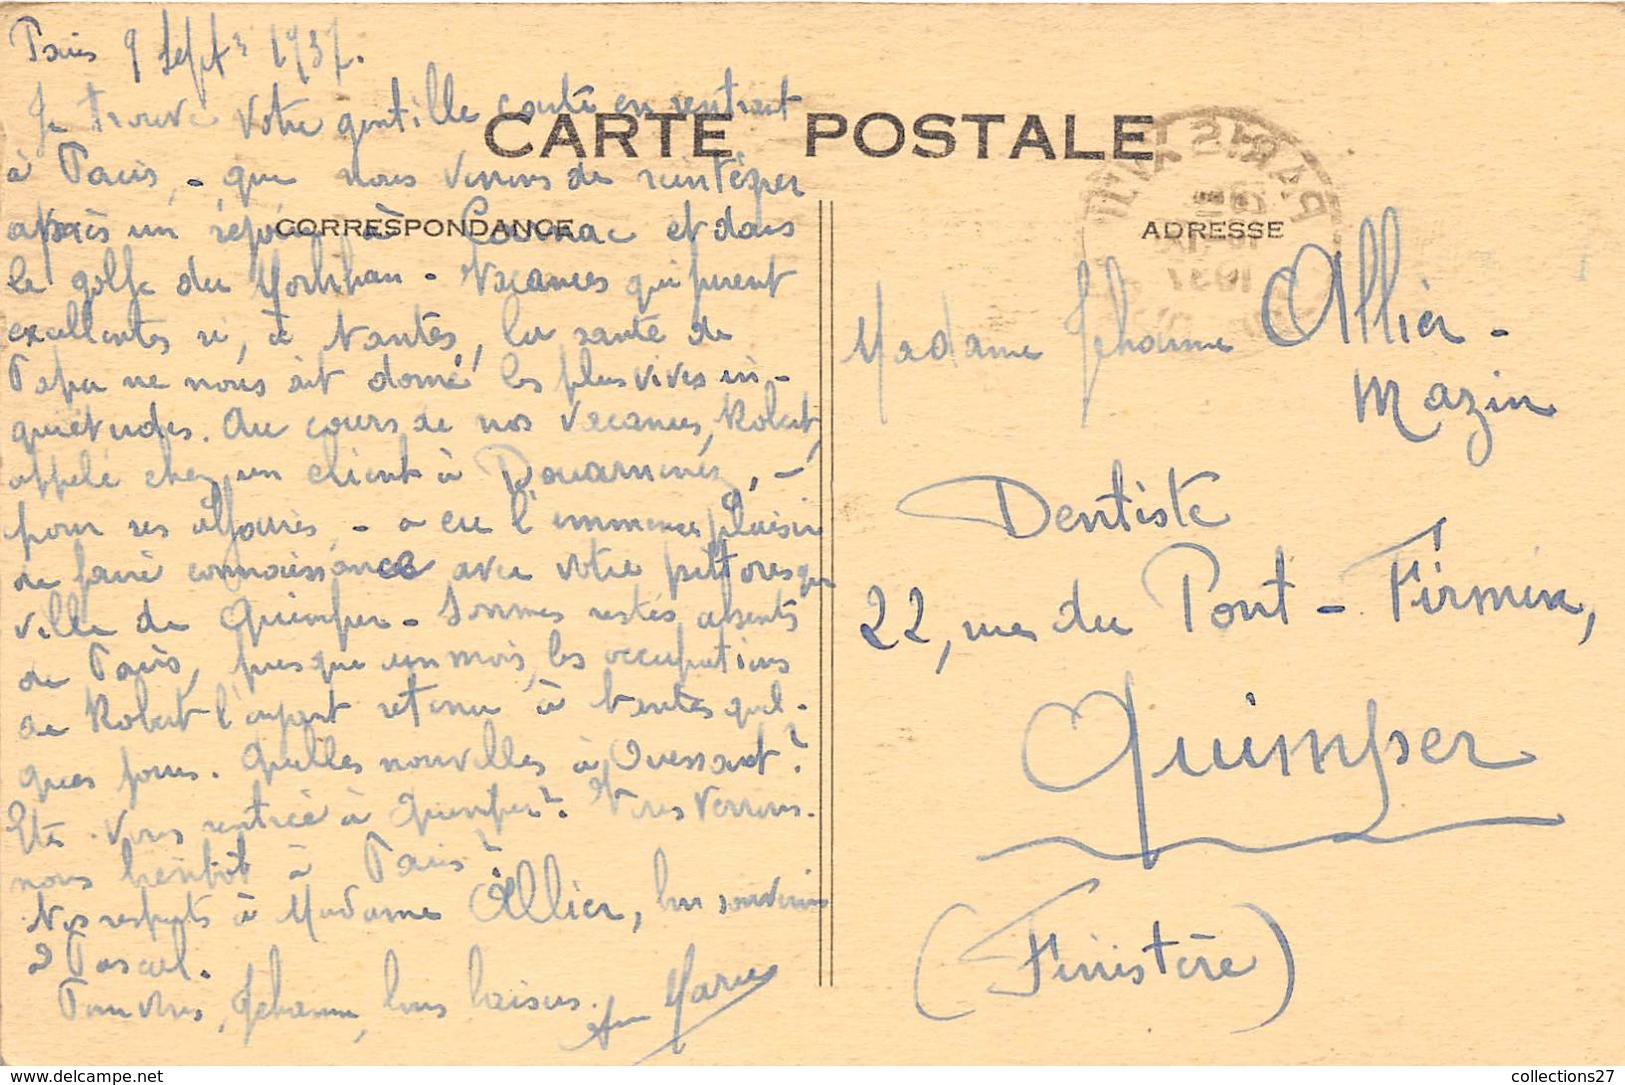 Paris 9 Sept. 1937.
Je trouve votre gentille carte en rentrant
CARTE POSTALE
à Paris, - que nous venons de réintégrer
après un séjour à Carnac et dans
CORRESPONDANCE
ADRESSE
le golfe du Morbihan - Vacances qui furent
excellentes si, à Nantes, la santé de
Papa ne nous ait donné les plus vives in-
quiétudes. Au cours de nos vacances, Robert,
appelé chez un client à Douarnenez, -
pour ses affaires, - a eu l'immense plaisir
de faire connaissance avec votre pittoresque
ville de Quimper - Sommes restés absents
de Paris, presque un mois, les occupations
de Robert l'ayant retenu à Nantes quel-
ques jours. Quelles nouvelles à Ouessant?
Etes-vous rentrée à Quimper? Vous verrons-
nous bientôt à Paris?
Nos respects à Madame Allier, bon souvenir
à Pascal.
Pour vous, Jehanne, bons baisers.
Marie
Madame Jehanne Allier -
Mazin
Dentiste
22, rue du Pont-Firmin,
Quimper
(Finistère)
PARIS
1937
collections27